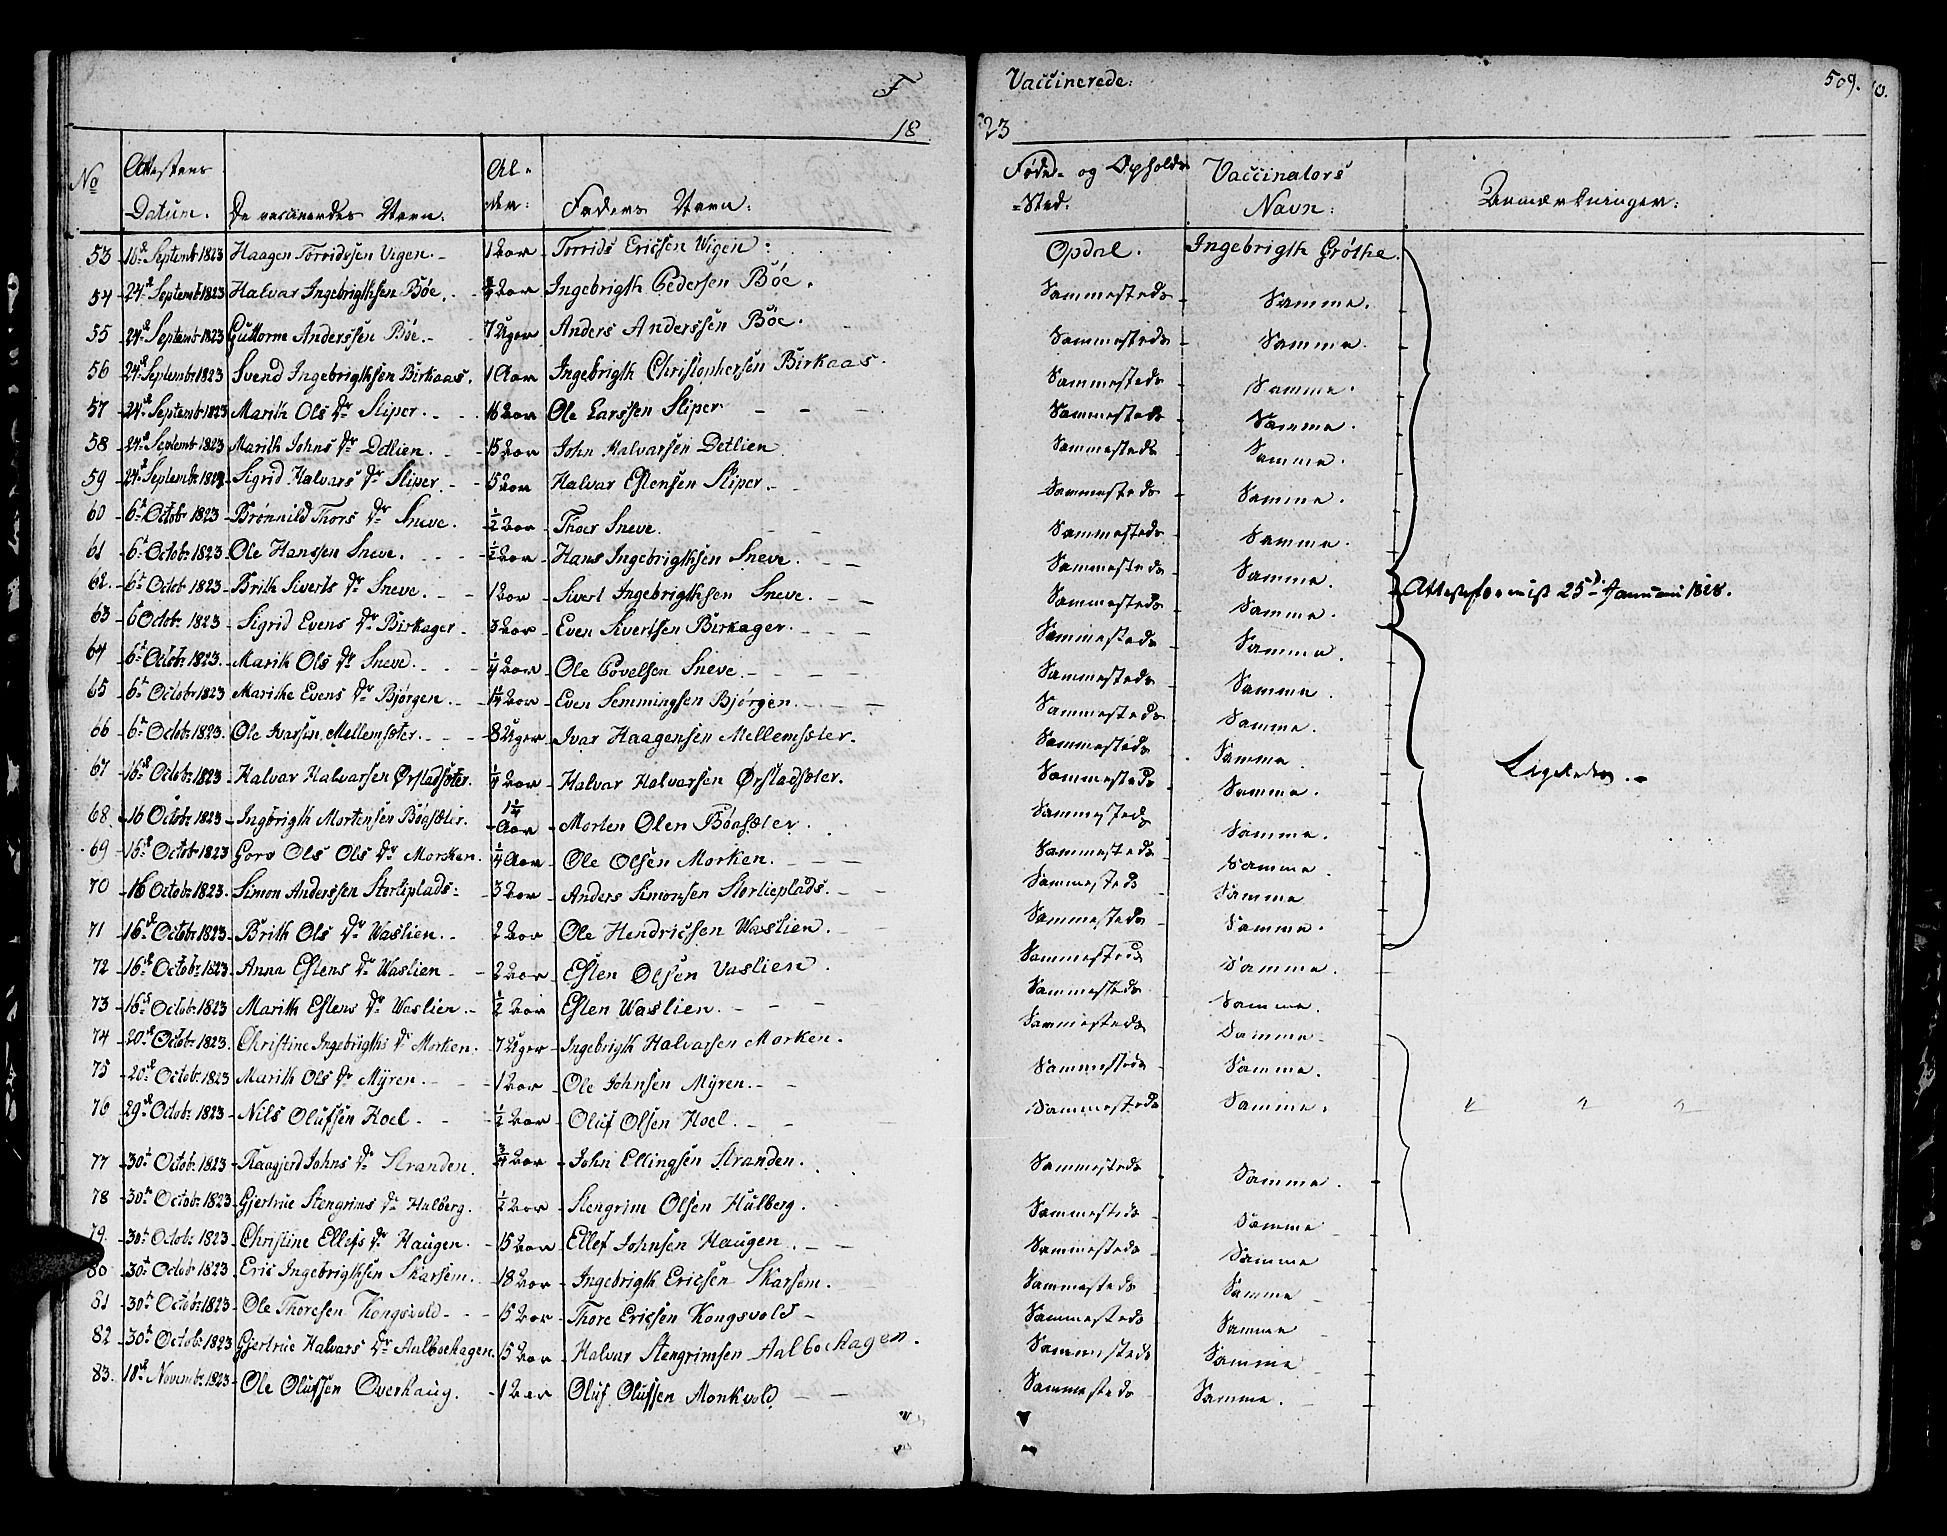 F Vaccinerede: 509.
18 23
No Attestens Datum. De vaccineredes Navn. Al-der: Faders Navn: Føde- og Opholds-Sted. Vaccinators Navn: Anmærkninger:
53 18de Septembr 1823 Haagen Torridssen Vigen. 1 Aar Torrids Ericsen Wigen: Opdal. Ingebrigth Grøthe.
54 24de Septembr 1823 Halvar Ingebrigthsen Bøe. Aar Ingebrigth Pedersen Bøe. Sammesteds Samme.
55 24de Septembr 1823 Guttorme Anderssen Bøe. 7 Uger Anders Anderssen Bøe. Sammesteds Samme.
56 24de Septembr 1823 Svend Ingebrigthsen Birkaas. 1 Aar Ingebrigth Christophersen Birkaas. Sammesteds Samme.
57 24de Septembr 1823 Marith Ols Dr Sliper. 16 Aar Ole Larssen Sliper. Sammesteds Samme.
58 24de Septembr 1823 Marith Johns Dr Detlien. 15 Aar John Halvarsen Detlien. Sammesteds Samme.
59 24de Septembr 1823 Sigrid Halvars Dr Sliper. 15 Aar Halvar Estensen Sliper. Sammesteds Samme.
60 6te Octobr 1823 Brønnild Thors Dr Sneve. 1/2 Aar Thoer Sneve. Sammesteds Samme.
61 6te Octobr 1823 Ole Hanssen Sneve. 1/2 Aar Hans Ingebrigthsen Sneve. Sammesteds Samme.
62. 6te Octobr 1823 Brith Siverts Dr Sneve. 1 Aar Sivert Ingebrigthsen Sneve. Sammesteds Samme. Attestformist 25de Januari 1828.
63 6 Octobr 1823 Sigrid Evens Dr Birkager 3 Aar Even Sivertsen Birkager. Sammesteds Samme.
64 6te Octobr 1823. Marith Ols Dr Sneve. 1/4 Aar Ole Povelsen Sneve. Sammesteds Samme.
65 6te Octobr 1823 Marithe Evens Dr Bjørgen. 1/4 Aar Even Semmingsen Bjørgen. Sammesteds Samme.
66 6te Octobr 1823. Ole Ivarsen Mellemsæter. 8 Uger Ivar Haagensen Mellemsæter. Sammesteds Samme.
67 16de Octobr 1823 Halvar Halvarsen Ørstadsæter. 1/4 Aar Halvar Halvarsen Ørstadsæter. Sammesteds Samme. Ligeledes.
68. 16 Octobr 1823 Ingbrigth Mortensen Bøasæter. 1 1/4 Aar Morten Olen Bøasæter. Sammesteds Samme.
69 16de Octobr 1823 Goro Ols Ols Dr Morsken. 1/4 Aar Ole Olsen Morken. Sammesteds Samme.
70 16 Octobr 1823. Simon Anderssen Storliplads: 3 Aar Anders Simonsen Storlieplads. Sammesteds Samme
71 16de Octobr 1823 Brith Ols Dr Waslien. 2 Aar Ole Hendricsen Waslien. Sammesteds Samme.
72 16de Octobr 1823 Anna Estens Dr Waslien 2 Aar Esten Olsen Vaslien. Sammesteds Samme.
73 16de Octobr 1823 Marith Estens Dr Waslien. 1/2 Aar Esten Waslien. Sammesteds Samme.
74 20de Octobr 1823. Christine Ingebrigths Dr Morken. 7 Uger Ingebrigth Halvarsen Morken. Sammesteds Samme
75 20de Octobr 1823 Marith Ols Dr Myren. 1 Aar Ole Johnsen Myren. Sammesteds Samme.
76 29de Octobr 1823 Nils Olufsen Hoel. 1/2 Aar Oluf Olsen Hoel. Sammesteds Samme. " " "
77 30te Octobr 1823 Raagjerd Johns Dr Stranden. 3/4 Aar John Ellingsen Stranden. Sammesteds Samme.
78 30te Octobr 1823 Gjertrue Stengrims Dr Halberg. 1/2 Aar Stengrim Olsen Hulberg. Sammesteds Samme
79. 30te Octobr 1823 Christine Ellefs Dr Haugen. 15 Aar Ellef Johnsen Haugen. Sammesteds Samme
80 30te Octobr 1823 Eric Ingebrigthsen Skarsem. 18 Aar Ingebrigth Ericsen Skarsem. Sammesteds Samme
81 30te Octobr 1823 Ole Thoresen Kongsvold 15 Aar Thore Ericsen Kongsvold Sammesteds Samme
82 30te Octobr 1823 Gjertrue Halvars Dr Aalboehagen. 15 Aar Halvar Stengrimsen Aalboehagen. Sammesteds Samme
83. 18de Novembr 1823 Ole Olufsen Overhaug. 1 Aar Oluf Olufsen Monkvold Sammesteds Samme.